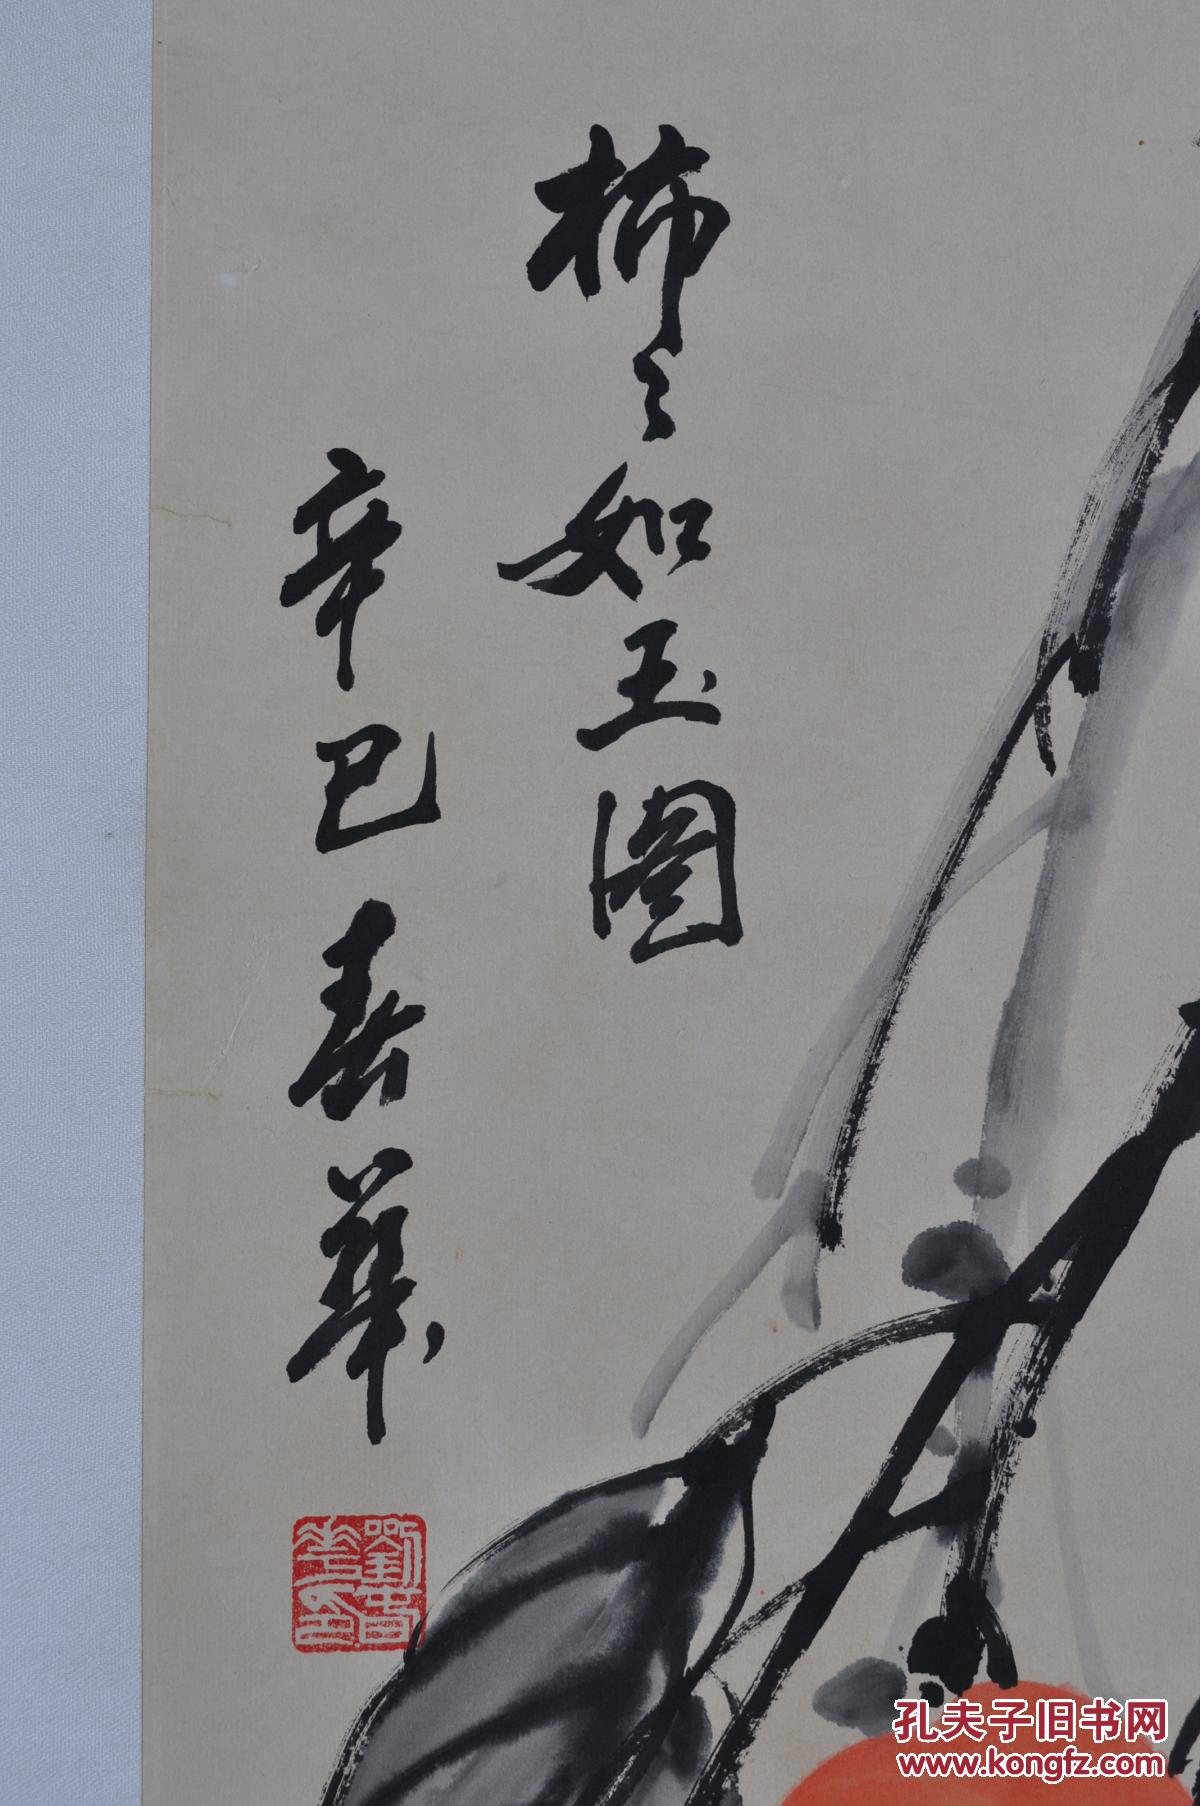 柿〻如玉圖
辛巳春華
劉春華印
孔夫子旧书网
www.kongfz.com